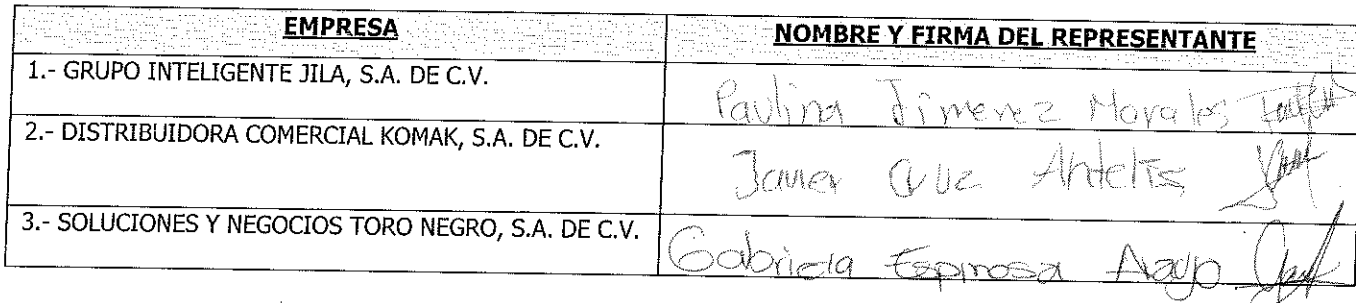 EMPRESA NOMBRE Y FIRMA DEL REPRESENTANTE
1.- GRUPO INTELIGENTE JILA, S.A. DE C.V. Paulina Jimenez Morales
2.- DISTRIBUIDORA COMERCIAL KOMAK, S.A. DE C.V. Javier Cruz
3.- SOLUCIONES Y NEGOCIOS TORO NEGRO, S.A. DE C.V. Gabriela Espinosa Araujo